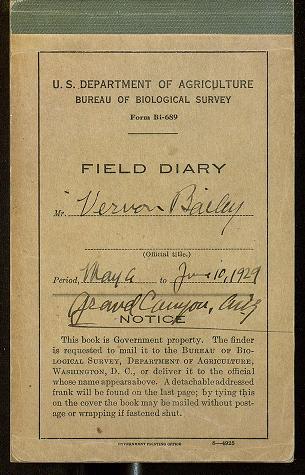 U. S. DEPARTMENT OF AGRICULTURE
BUREAU OF BIOLOGICAL SURVEY
Form Bi-689
FIELD DIARY
Mr. Vernon Bailey
(Official title.)
Period, May 6 to June 10, 1929
Grand Canyon, Ariz
NOTICE
This book is Government property. The finder
is requested to mail it to the BUREAU OF BIO-
LOGICAL SURVEY, DEPARTMENT OF AGRICULTURE,
WASHINGTON, D. C., or deliver it to the official
whose name appears above. A detachable addressed
frank will be found on the last page; by tying this
on the cover the book may be mailed without post-
age or wrapping if fastened shut.
GOVERNMENT PRINTING OFFICE 8—4925